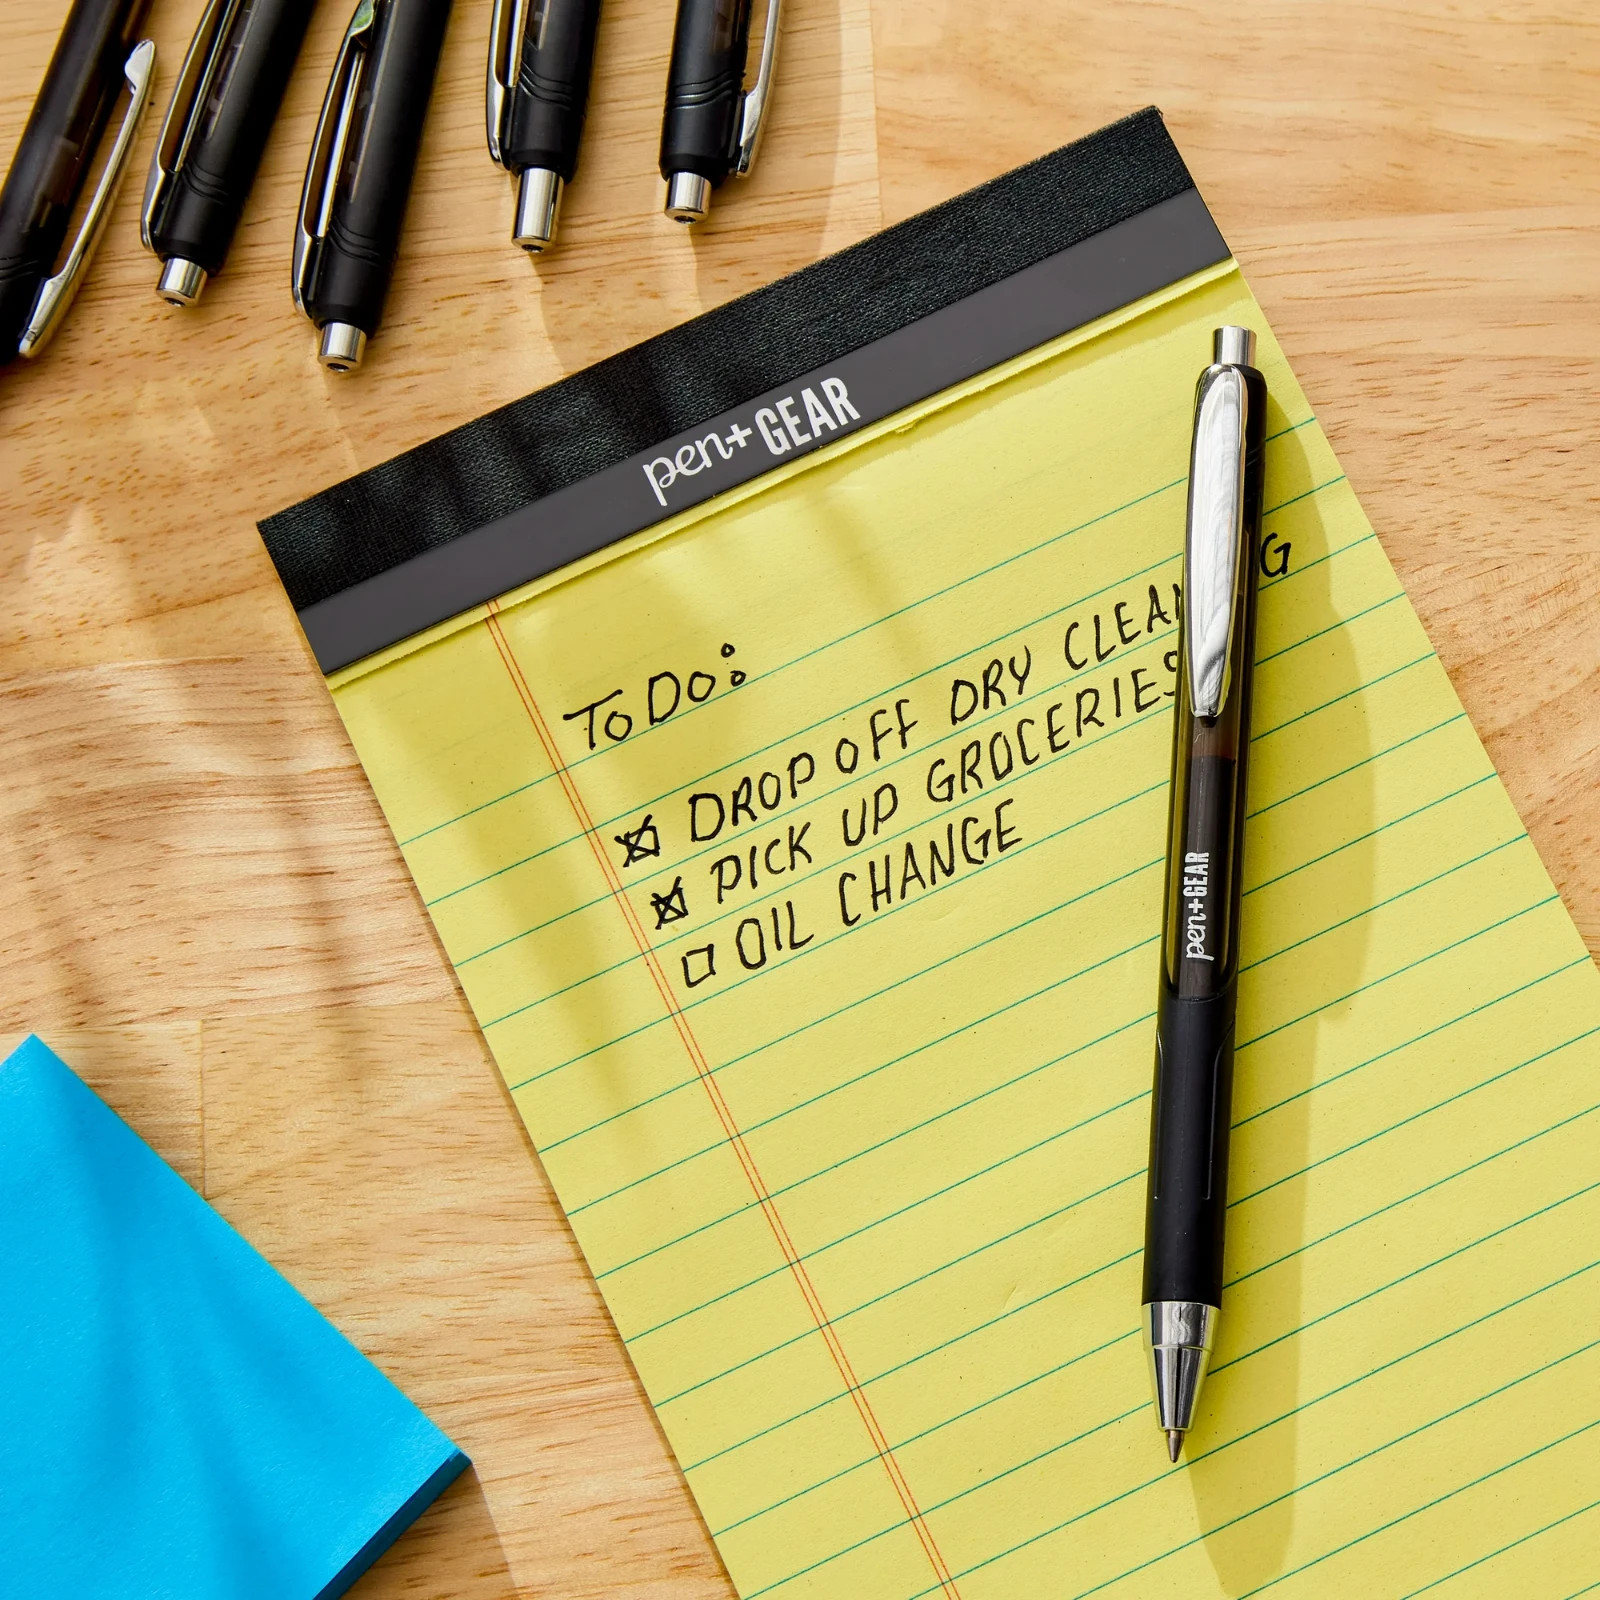 pen+GEAR
To Do:
DROP OFF DRY CLEANING
PICK UP GROCERIES
OIL CHANGE
pen+GEAR